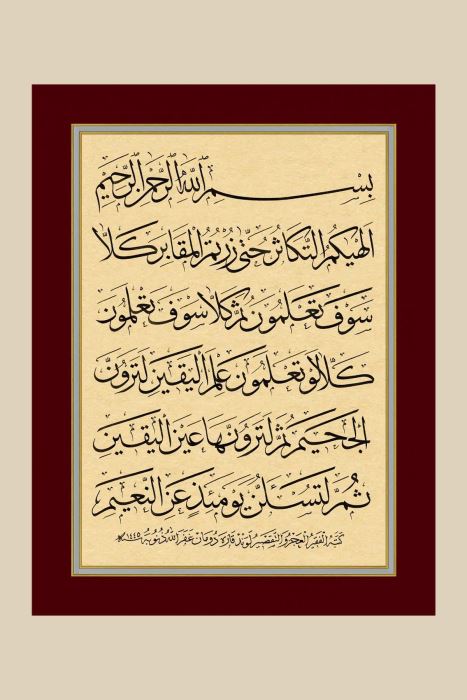 بسم الله الرحمن الرحيم
الهيكم التكاثر حتى زرتم المقابر كلا
سوف تعلمون ثم كلا سوف تعلمون
كلا لو تعلمون علم اليقين لترون
الجحيم ثم لترونها عين اليقين
ثم لتسئلن يومئذ عن النعيم
كتبه الفقير العجز والتقصير لوند قاره دومان غفر الله ذنوبه ١٤٤٥